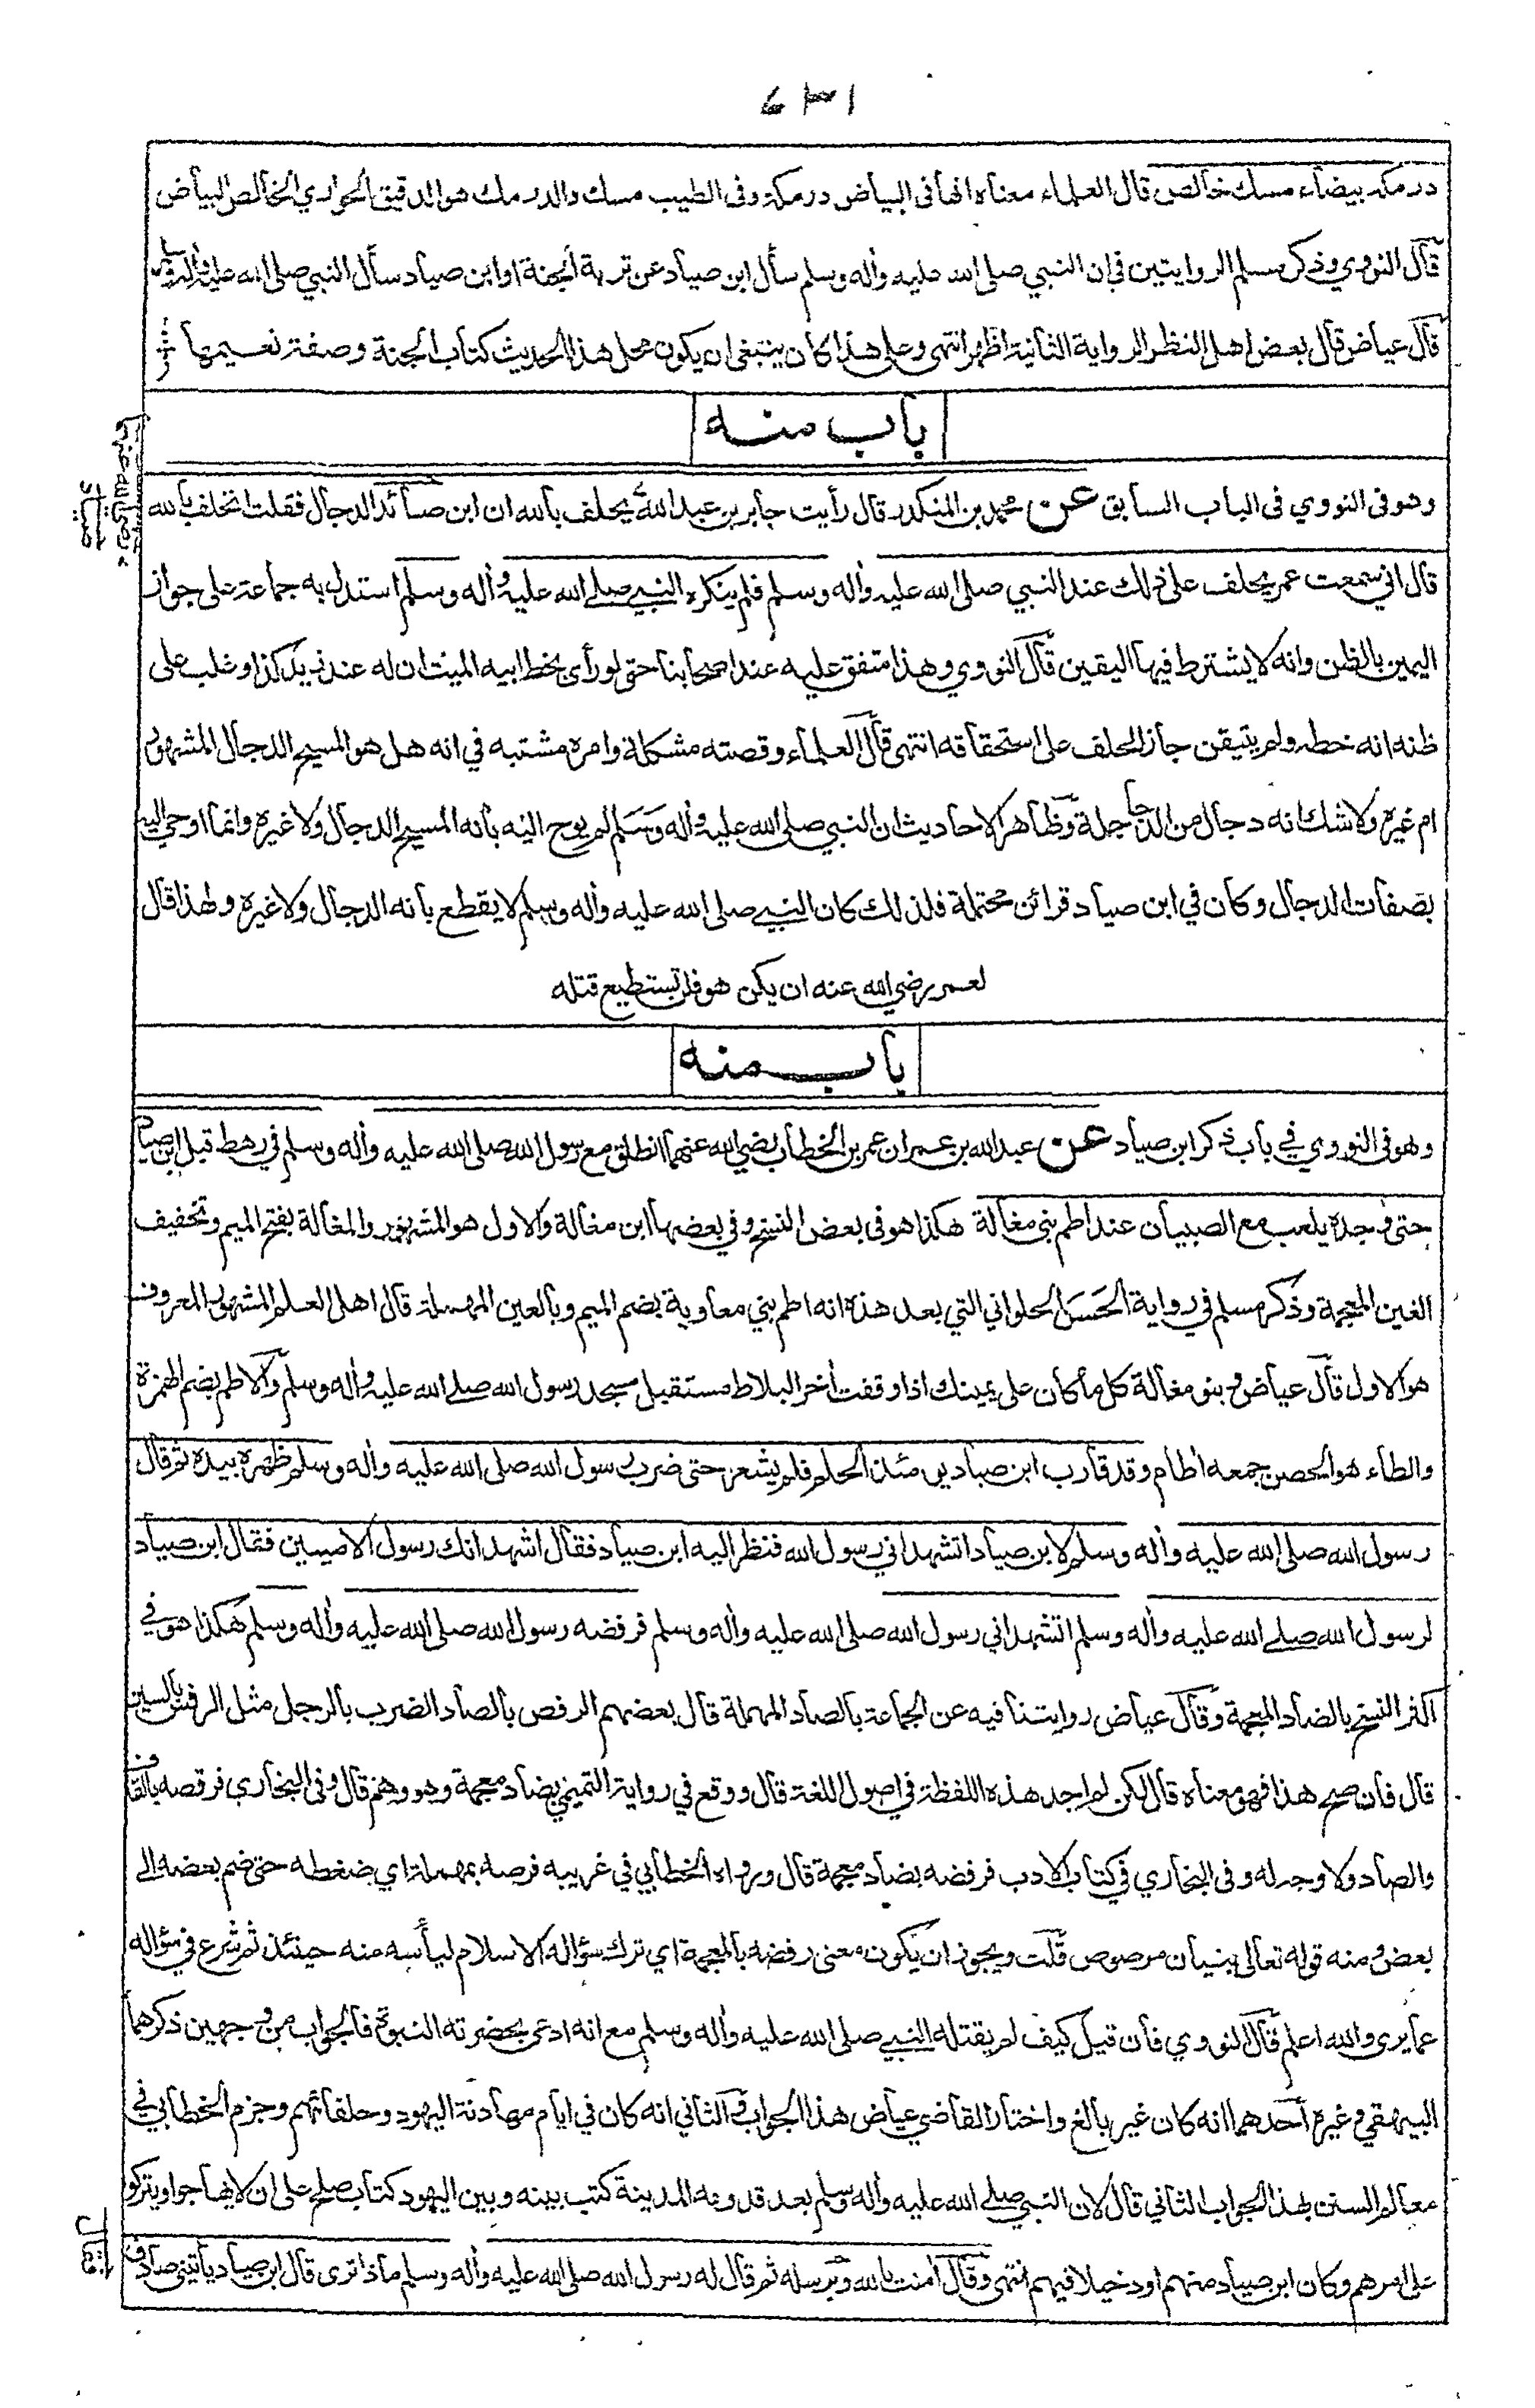 ۶۳۱
درمكة بيضاء مسك خالص قال العلماء معناه انها في البياض درمكة وفي الطيب مسك والدرمك هو الدقيق الحواري الخالص البياض
قال النووي وذكر مسلم الروايتين في ان النبي صلى الله عليه وأله وسلم سأل ابن صياد عن تربة الجنة او ابن صياد سأل النبي صلى الله عليه وأله وسلم
قال عياض قال بعض اهل النظر الرواية الثانية اظهر انتهى وعلى هذا كان ينبغي ان يكون محل هذا الحديث كتاب الجنة وصفة نعيمها
باب منه
وهو في النووي في الباب السابق عن محمد بن المنكدر قال رأيت جابر بن عبد الله يحلف بالله ان ابن صائد الدجال فقلت اتحلف بالله
قال اني سمعت عمر يحلف على ذلك عند النبي صلى الله عليه وأله وسلم فلم ينكره النبي صلے الله عليه وأله وسلم استدل به جماعة على جواز
اليمين بالظن وانه لا يشترط فيها اليقين قال النووي وهذا متفق عليه عند اصحابنا حتى لو رأى بخط ابيه الميت ان له عند زيد كذا وغلب على
ظنه انه خطه ولم يتيقن جاز الحلف على استحقاقه انتهى قال العلماء وقصته مشكلة وامره مشتبه في انه هل هو المسيح الدجال المشهور
ام غيره ولا شك انه دجال من الدجاجلة وظاهر الاحاديث ان النبي صلى الله عليه وأله وسلم لم يوح اليه بانه المسيح الدجال ولا غيره وانما اوحي اليه
بصفات الدجال وكان في ابن صياد قرائن محتملة فلذلك كان النبي صلى الله عليه وأله وسلم لا يقطع بانه الدجال ولا غيره ولهذا قال
لعمر رضي الله عنه ان يكن هو فلن تستطيع قتله
باب منه
وهو في النووي في باب ذكر ابن صياد عن عبد الله بن عمر ان عمر بن الخطاب رضي الله عنهما انطلق مع رسول الله صلى الله عليه وأله وسلم في رهط قبل ابن صياد
حتى وجده يلعب مع الصبيان عند اطم بني مغالة هكذا هو في بعض النسخ وفي بعضها ابن مغالة والاول هو المشهور والمغالة بفتح الميم وتخفيف
الغين المعجمة وذكر مسلم في رواية الحسن الحلواني التي بعد هذه انه اطم بني معاوية بضم الميم وبالعين المهملة قال اهل العلم المشهور المعروف
هو الاول قال عياض وبنو مغالة كل ما كان على يمينك اذا وقفت أخر البلاط مستقبل مسجد رسول الله صلے الله عليه وأله وسلم والاطم بضم الهمزة
والطاء هو الحصن جمعه أطام وقد قارب ابن صياد يومئذ الحلم فلم يشعر حتى ضرب رسول الله صلى الله عليه وأله وسلم ظهره بيده ثم قال
رسول الله صلى الله عليه وأله وسلم لابن صياد اتشهد اني رسول الله فنظر اليه ابن صياد فقال اشهد انك رسول الاميين فقال ابن صياد
لرسول الله صلے الله عليه وأله وسلم اتشهد اني رسول الله صلى الله عليه وأله وسلم فرفضه رسول الله صلى الله عليه وأله وسلم هكذا هو في
اكثر النسخ بالضاد المعجمة وقال عياض روايتنا فيه عن الجماعة بالصاد المهملة قال بعضهم الرفص بالصاد الضرب بالرجل مثل الرفس بالسين
قال فان صح هذا فهو معناه قال لكن لم اجد هذه اللفظة في اصول اللغة قال ووقع في رواية التميمي بضاد معجمة وهو وهم قال وفي البخاري فرقصه بالقاف
والصاد ولا وجه له وفي البخاري في كتاب الادب فرفضه بضاد معجمة قال ورواه الخطابي في غريبه فرصه بمهملة اي ضغطه حتى ضم بعضه الى
بعض ومنه قوله تعالى بنيان مرصوص قلت ويجوز ان يكون معنى رفضه بالمعجمة اي ترك سؤاله الاسلام ليأسه منه حينئذ ثم شرع في سؤاله
عما يرى والله اعلم قال النووي فان قيل كيف لم يقتله النبي صلى الله عليه وأله وسلم مع انه ادعى بحضرته النبوة فالجواب من وجهين ذكرهما
البيهقي وغيره أحدهما انه كان غير بالغ واختار القاضي عياض هذا الجواب والثاني انه كان في ايام مهادنة اليهود وحلفائهم وجزم الخطابي في
معالم السنن بهذا الجواب الثاني قال لان النبي صلے الله عليه وأله وسلم بعد قدومه المدينة كتب بينه وبين اليهود كتاب صلح على ان لا يهاجوا ويتركوا
على امرهم وكان ابن صياد منهم او دخيلا فيهم انتهى وقال أمنت بالله وبرسله ثم قال له رسول الله صلى الله عليه وأله وسلم ماذا ترى قال ابن صياد يأتيني صادق